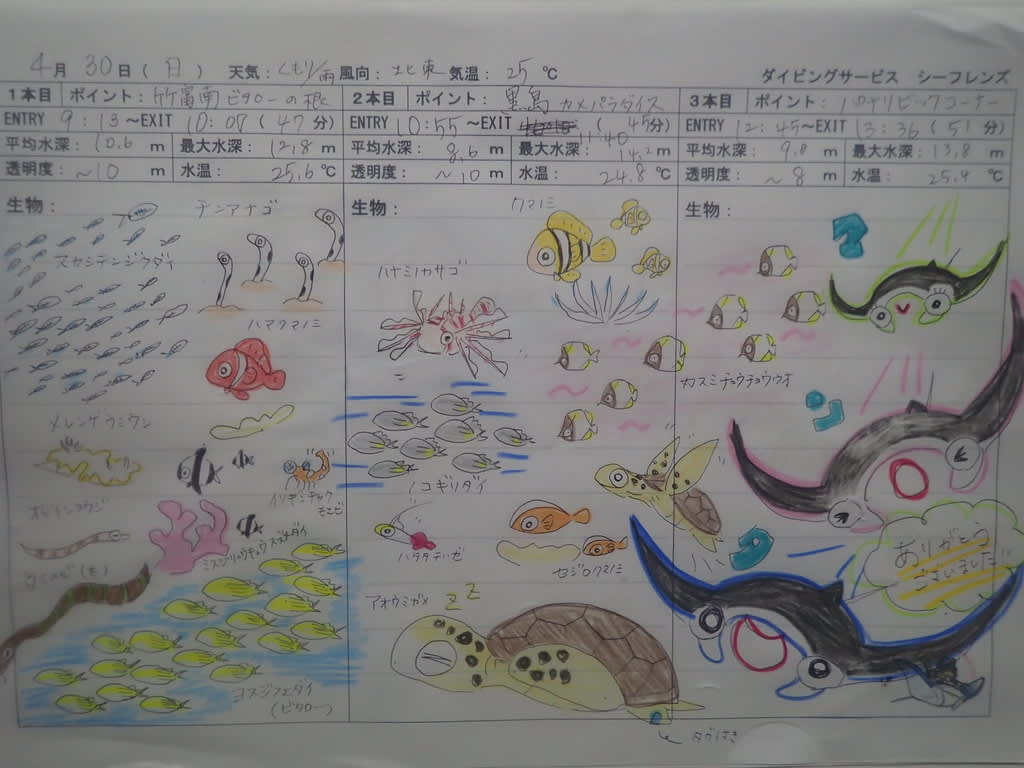 4月 30日(日) 天気:くもり/雨 風向:北東 気温:25℃
ダイビングサービス シーフレンズ
1本目 ポイント:竹富南 ビタローの根
ENTRY 9:13~EXIT 10:00(47分)
平均水深:10.6m 最大水深:12.8m
透明度:~10m 水温:25.6℃
生物:
チンアナゴ
スカシテンジクダイ
ハマクマノミ
メレンゲウミウシ
イソギンチャク
モエビ
オイランヨウジ
ミスジリュウキュウスズメダイ
ウミヘビ(も)
コスジフエダイ
(ビタロー)
2本目 ポイント:黒島 カメパラダイス
ENTRY 10:55~EXIT 11:40(45分)
平均水深:8.6m 最大水深:14.2m
透明度:~10m 水温:24.8℃
生物:
クマノミ
ハナミノカサゴ
ノコギリダイ
ハタタテハゼ
セジロクマノミ
アオウミガメ
ZZ
タグつき
3本目 ポイント:パナリビッグコーナー
ENTRY 12:45~EXIT 13:36(51分)
平均水深:9.8m 最大水深:13.8m
透明度:~8m 水温:25.4℃
生物:
カスミチョウチョウウオ
ありがとう
ございました